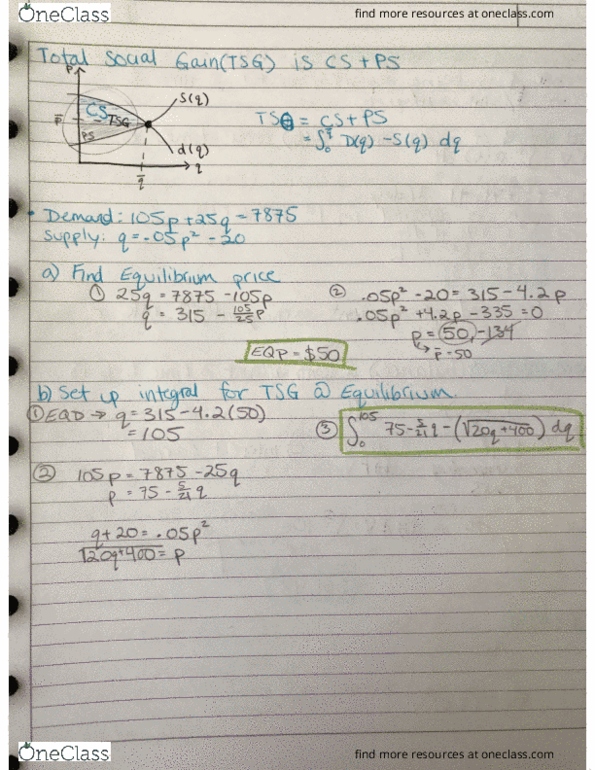 OneClass
find more resources at oneclass.com
Total Social Gain(TSG) is CS+PS
P
S(q)
CS
TSG
p̅
PS
d(q)
q
q̅
TSG = CS+PS
= ∫₀^q̅ D(q) - S(q) dq
• Demand: 105p+25q=7875
Supply: q=.05p² - 20
a) Find Equilibrium price
① 25q = 7875 - 105p
q = 315 - 105/25 p
② .05p² - 20 = 315 - 4.2p
.05p² + 4.2p - 335 = 0
p = 50, -134
↳ p̅ = 50
EQP = $50
b) Set up integral for TSG @ Equilibrium
① EQD → q = 315 - 4.2(50)
= 105
③ ∫₀^105 75 - 5/21 q - (√20q+400) dq
② 105p = 7875 - 25q
p = 75 - 5/21 q
q + 20 = .05p²
√20q+400 = p
OneClass
find more resources at oneclass.com